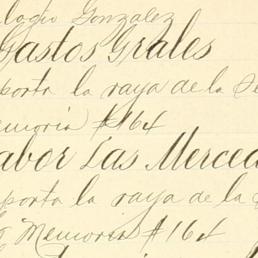 logio Gonzalez
Gastos Grales
porta la raya de la Se
emoria #164
abor Las Merced
porta la raya de la
Memoria #164